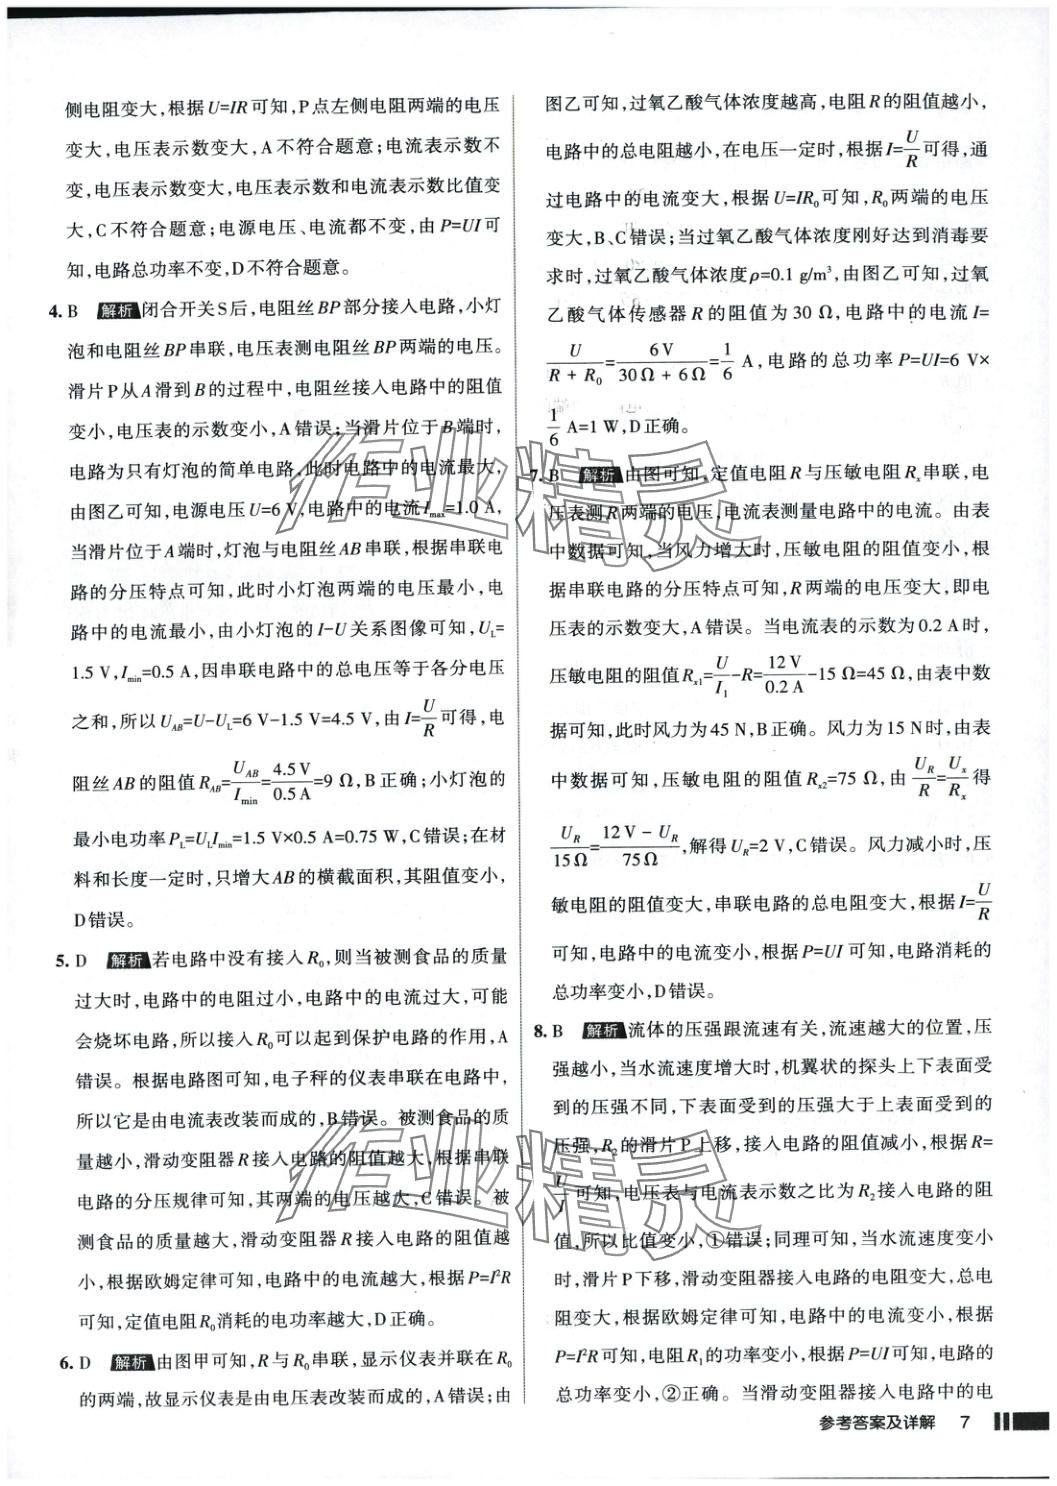 侧电阻变大,根据U=IR可知,P点左侧电阻两端的电压
变大,电压表示数变大,A不符合题意;电流表示数不
变,电压表示数变大,电压表示数和电流表示数比值变
大,C不符合题意;电源电压、电流都不变,由P=UI可
知,电路总功率不变,D不符合题意。
4. B 解析 闭合开关S后,电阻丝BP部分接入电路,小灯
泡和电阻丝BP串联,电压表测电阻丝BP两端的电压。
滑片P从A滑到B的过程中,电阻丝接入电路中的阻值
变小,电压表的示数变小,A错误;当滑片位于B端时,
电路为只有灯泡的简单电路,此时电路中的电流最大,
由图乙可知,电源电压U=6 V,电路中的电流Imax=1.0 A。
当滑片位于A端时,灯泡与电阻丝AB串联,根据串联电
路的分压特点可知,此时小灯泡两端的电压最小,电
路中的电流最小,由小灯泡的I-U关系图像可知,UL=
1.5 V,Imin=0.5 A,因串联电路中的总电压等于各分电压
之和,所以UAB=U-UL=6 V-1.5 V=4.5 V,由I=U/R可得,电
阻丝AB的阻值RAB=UAB/Imin=4.5 V/0.5 A=9 Ω,B正确;小灯泡的
最小电功率PL=ULImin=1.5 V×0.5 A=0.75 W,C错误;在材
料和长度一定时,只增大AB的横截面积,其阻值变小,
D错误。
5. D 解析 若电路中没有接入R0,则当被测食品的质量
过大时,电路中的电阻过小,电路中的电流过大,可能
会烧坏电路,所以接入R0可以起到保护电路的作用,A
错误。根据电路图可知,电子秤的仪表串联在电路中,
所以它是由电流表改装而成的,B错误。被测食品的质
量越小,滑动变阻器R接入电路的阻值越大,根据串联
电路的分压规律可知,其两端的电压越大,C错误。被
测食品的质量越大,滑动变阻器R接入电路的阻值越
小,根据欧姆定律可知,电路中的电流越大,根据P=I²R
可知,定值电阻R0消耗的电功率越大,D正确。
6. D 解析 由图甲可知,R与R0串联,显示仪表并联在R0
的两端,故显示仪表是由电压表改装而成的,A错误;由
图乙可知,过氧乙酸气体浓度越高,电阻R的阻值越小,
电路中的总电阻越小,在电压一定时,根据I=U/R可得,通
过电路中的电流变大,根据U=IR0可知,R0两端的电压
变大,B、C错误;当过氧乙酸气体浓度刚好达到消毒要
求时,过氧乙酸气体浓度ρ=0.1 g/m³,由图乙可知,过氧
乙酸气体传感器R的阻值为30 Ω,电路中的电流I=
U/(R + R0)=6 V/(30 Ω + 6 Ω)=1/6 A,电路的总功率P=UI=6 V×
1/6 A=1 W,D正确。
7. B 解析 由图可知,定值电阻R与压敏电阻Rx串联,电
压表测R两端的电压,电流表测量电路中的电流。由表
中数据可知,当风力增大时,压敏电阻的阻值变小,根
据串联电路的分压特点可知,R两端的电压变大,即电
压表的示数变大,A错误。当电流表的示数为0.2 A时,
压敏电阻的阻值Rx1=U/I1-R=12 V/0.2 A-15 Ω=45 Ω,由表中数
据可知,此时风力为45 N,B正确。风力为15 N时,由表
中数据可知,压敏电阻的阻值Rx2=75 Ω,由UR/R=Ux/Rx得
UR/15 Ω=(12 V - UR)/75 Ω,解得UR=2 V,C错误。风力减小时,压
敏电阻的阻值变大,串联电路的总电阻变大,根据I=U/R
可知,电路中的电流变小,根据P=UI可知,电路消耗的
总功率变小,D错误。
8. B 解析 流体的压强跟流速有关,流速越大的位置,压
强越小,当水流速度增大时,机翼状的探头上下表面受
到的压强不同,下表面受到的压强大于上表面受到的
压强,R2的滑片P上移,接入电路的阻值减小,根据R=
U/I可知,电压表与电流表示数之比为R2接入电路的阻
值,所以比值变小,①错误;同理可知,当水流速度变小
时,滑片P下移,滑动变阻器接入电路的电阻变大,总电
阻变大,根据欧姆定律可知,电路中的电流变小,根据
P=I²R可知,电阻R1的功率变小,根据P=UI可知,电路的
总功率变小,②正确。当滑动变阻器接入电路中的电
参考答案及详解 7
作业精灵
作业精灵